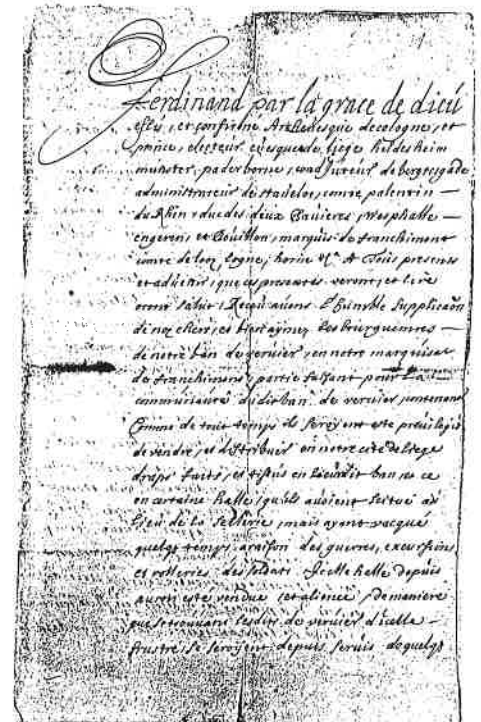 Ferdinand par la grace de dieu
esleu, et confirme Archevesque de cologne, et
prince, electeur evesque de liege hildesheim
munster, paderborne, coadjuteur de
administrateur de stavelot, comte palentin
du Rhin, duc des deux Bavieres, Wesphalle
engeren, et Bouillon, marquis de franchimont
comte de looz, logne, horne &c A Tous presents
et advenir, que ces presentes veront, et lire
oront salut, Receu avons l'humble supplicaon
de noz chers, et bien aymez les bourguemres
de notre ban de vervier, en notre marquisat
de franchimont, partie faisant pour La
communauté dudit ban de vervier, contenant
Comme de tout temps ils seroyent esté previlegié
de vendre, et distribuer en notre cité de liege
draps faits, et tissus en ban, et ce
en certaine halle, qu'ils auoient au
lieu de la sellerie, mais ayant vacqué
quelq temps, araison des guerres, excursions
et volleries des soldats Icelle halle depuis
auroit esté vendue, et alienée, de maniere
que se trouvans lesdits de vervier d'icelle
frustre, se seroyent depuis servis de quelqs